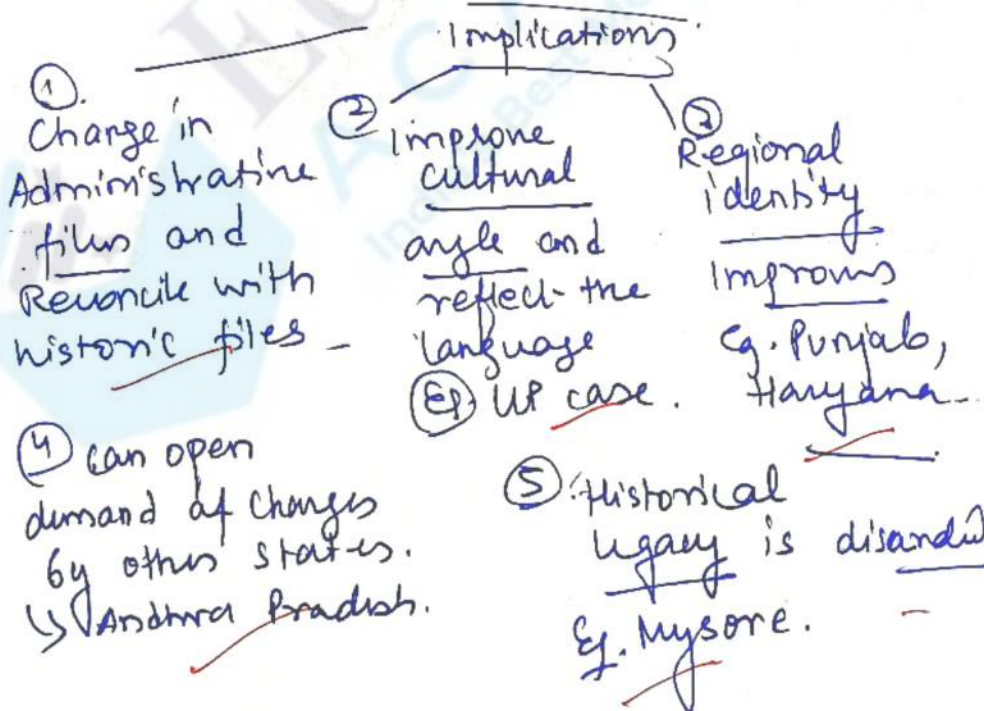 Implications
①.
Change in
Administrative
files and
Reconcile with
historic files
② Improve
cultural
angle and
reflect the
language
Eg. UP case.
③
Regional
identity
Improves
Eg. Punjab,
Haryana
④ can open
demand of changes
by other states.
↳ Andhra Pradesh.
⑤ Historical
legacy is
Eg. Mysore.